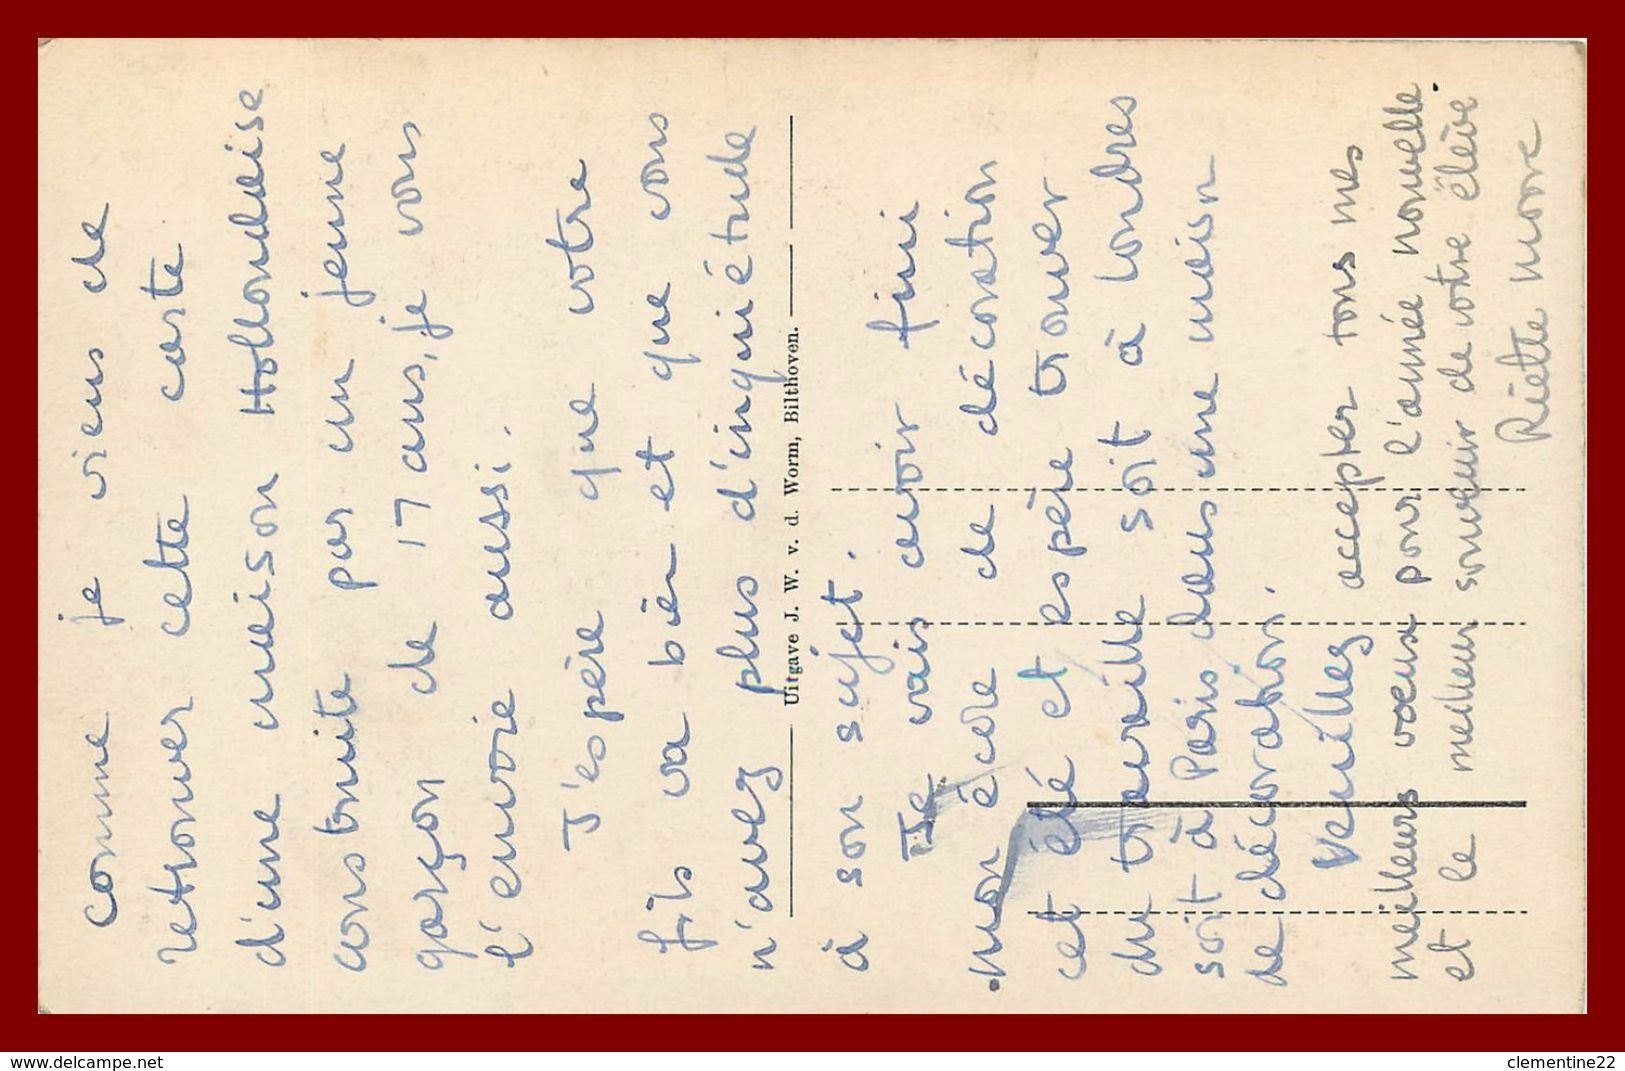 Comme je viens de
retrouver cette carte
d'une maison Hollondaise
construite par un jeune
garçon de 17 ans, je vous
l'envoie aussi.
J'espère que votre
fils va bien et que vous
n'avez plus d'inquiétude
Uitgave J. W. v. d. Worm, Bilthoven.
à son sujet.
Je vais avoir fini
mon école de décoration
cet été et espère trouver
du travaille soit à Londres
soit à Paris dans une maison
de décoration.
Veuillez accepter tous mes
meilleurs voeux pour l'année nouvelle
et le meilleur souvenir de votre élève
Riette Moore
www.delcampe.net
clementine22